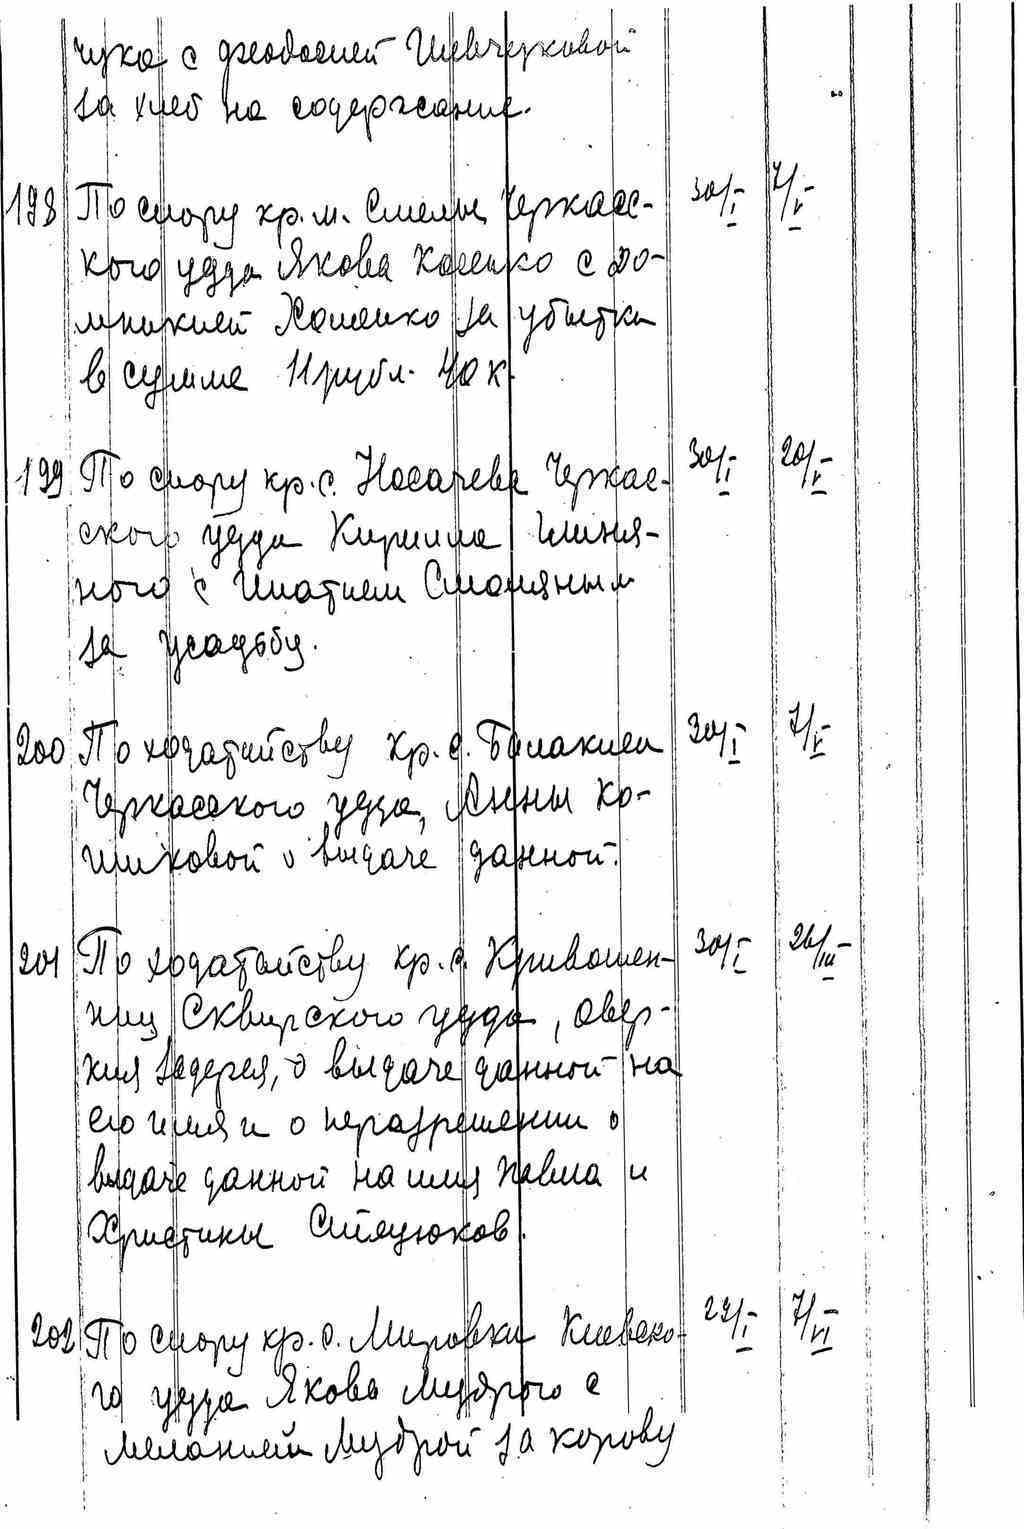 чука с Феодосией Шевчуковой
за хлеб на содержание.
198 По спору кр. м. Смелы, Черкасс- 30/I 7/V
кого уезда Якова Хоменко с До-
мникией Хоменко за убытки
в сумме 11 рубл. 40 к.
199 По спору кр. с. Носачева Черкас- 30/I 20/V
ского уезда Кирилла
ного с Ипатием
за усадьбу.
200 По ходатайству кр. с. Балаклеи 30/I 7/V
Черкасского уезда, Анны Ко-
шиковой о выдаче данной.
201 По ходатайству кр. с. Кривошеи- 30/I 26/III
нец Сквирского уезда, Овер-
кия Задерея, о выдаче данной на
его имя и о неразрешении о
выдаче данной на имя Павла и
Христины
202 По спору кр. с. Мировки Киевско- 29/I 7/VI
го уезда Якова Мудрого с
Меланией Мудрой за корову